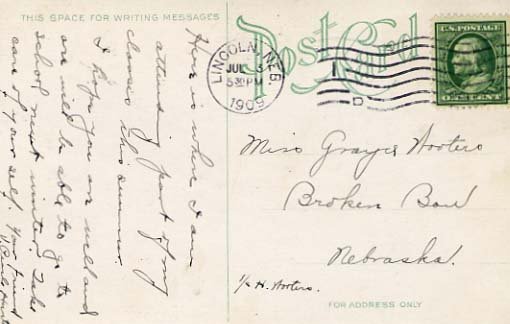 THIS SPACE FOR WRITING MESSAGES
Post Card
LINCOLN, NEB.
JUL 3
5 30 PM
1909
D
U.S. POSTAGE
ONE CENT
Here is where I am
attending part of my
classes this summer.
I hope you are well and
are will be able to go to
school next winter. Take
care of your self. Your friend
Miss Grayce Wooters
Broken Bow
Nebraska.
% H. Wooters.
FOR ADDRESS ONLY